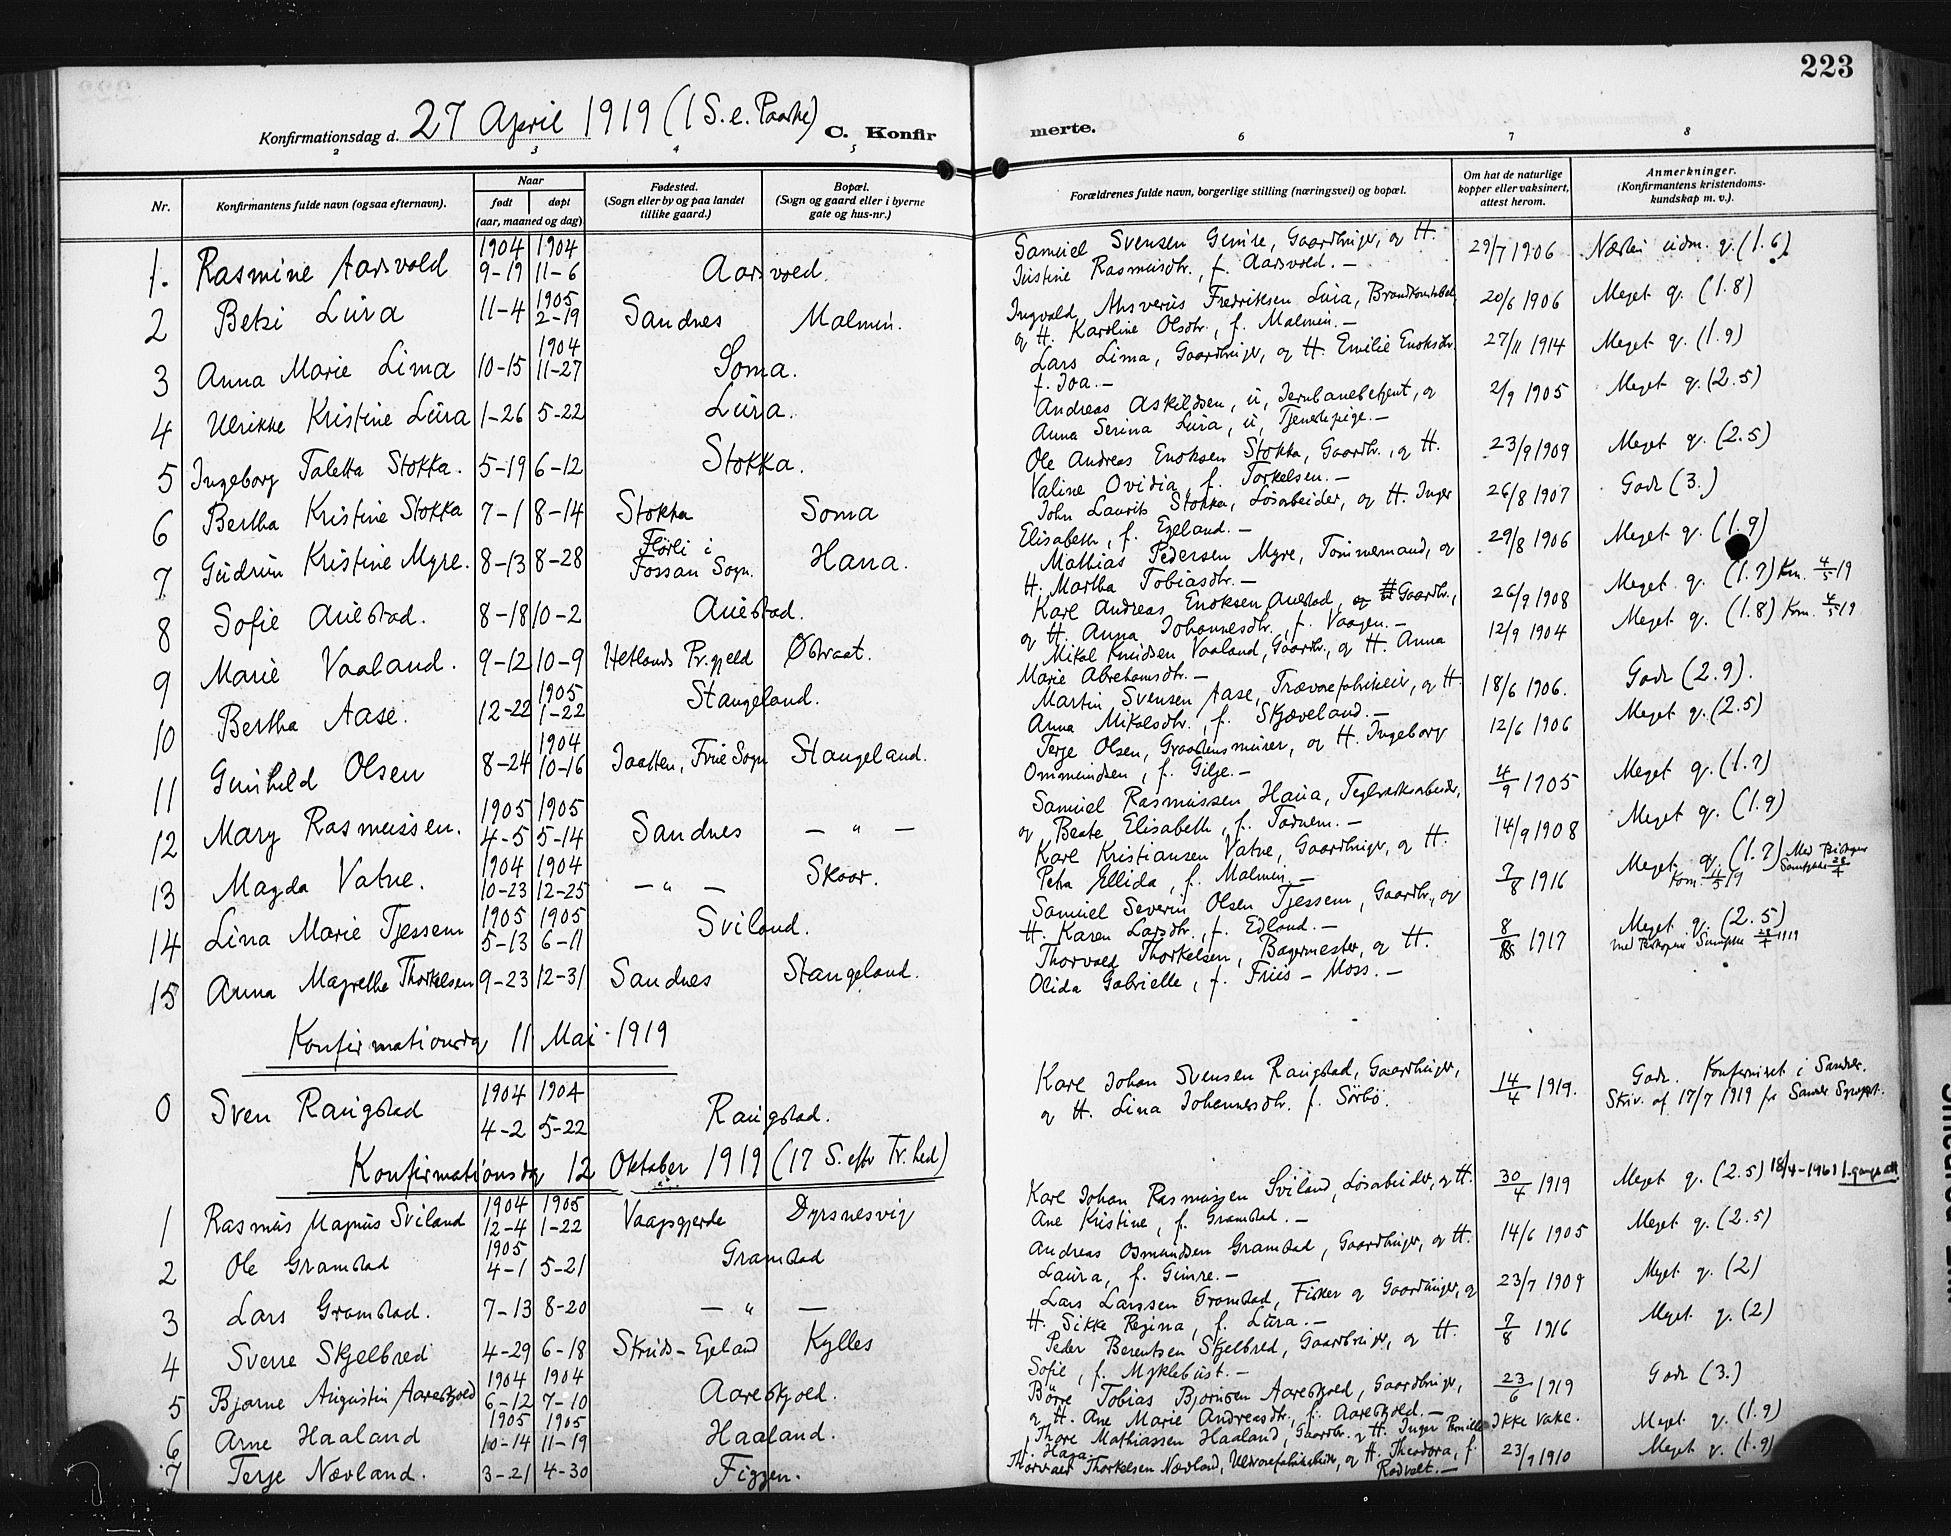 223
Konfirmationsdag d. 27 April 1919 (1 S. e. Paaske) C. Konfirmerte.
2 3 4 5 6 7 8
Nr.
Konfirmantens fulde navn (ogsaa efternavn).
Naar
født døpt
(aar, maaned og dag)
Fødested.
(Sogn eller by og paa landet
tillike gaard.)
Bopæl.
(Sogn og gaard eller i byerne
gate og hus-nr.)
Forældrenes fulde navn, borgerlige stilling (næringsvei) og bopæl.
Om hat de naturlige
kopper eller vaksinert,
attest herom.
Anmerkninger.
(Konfirmantens kristendoms-
kundskap m. v.).
1. Rasmine Aarsvold 1904 9-19 1904 11-6 Aarsvold. Samuel Svensen Gimre, Gaardbruger, og H. 29/7 1906 Næsten udm. g. (1.6)
Justine Rasmusdtr., f. Aarsvold. –
2 Betzi Lura 11-4 1905 2-19 Sandnes Malmin. Ingvald Ahsverus Fredriksen Lura, Brandkonstabel, 20/6 1906 Meget g. (1.8)
og H. Karoline Olsdtr., f. Malmin. –
3 Anna Marie Lima 10-15 1904 11-27 Soma. Lars Lima, Gaardbruger, og H. Emilie Enoksdtr. 27/11 1914 Meget g. (1.9)
f. Joa. –
4 Ulrikke Kristine Lura 1-26 5-22 Lura. Andreas Askildsen, u, Jernbanebetjent, og 2/9 1905 Meget g. (2.5)
Anna Serina Lura, u, Tjenestepige. –
5 Ingeborg Taletta Stokka. 5-19 6-12 Stokka. Ole Andreas Enoksen Stokka, Gaardbr., og H. 23/9 1909 Meget g. (2.5)
Valine Ovidia, f. Torkelsen. –
6 Bertha Kristine Stokka 7-1 8-14 Stokka Soma John Laurits Stokka, Løsarbeider, og H. Inger 26/8 1907 Godt (3.)
Elisabeth, f. Egeland. –
7 Gudrun Kristine Myre. 8-13 8-28 Flørli i Fossan Sogn. Hana. Mathias Pedersen Myre, Tømmermand, og 29/8 1906 Meget g. (1.9)
H. Martha Tobiasdtr. –
8 Sofie Auestad. 8-18 10-2 Auestad. Karl Andreas Enoksen Auestad, Gaardbr., 26/9 1908 Meget g. (1.7) Kon. 4/5 19
og H. Anna Johannesdtr., f. Vaagen. –
9 Marie Vaaland. 9-12 10-9 Hetlands Pr.gjeld Østraat. Mikal Knudsen Vaaland, Gaardbr., og H. Anna 12/9 1904 Meget g. (1.8) Kom. 4/5 19
Marie Abrahamsdtr. –
10 Bertha Aase. 12-22 1905 1-22 Stangeland. Martin Svensen Aase, Trævarefabrikeier, og H. 18/6 1906. Godt (2.9).
Anna Mikalsdtr., f. Skjæveland. –
11 Gunhild Olsen 8-24 1904 10-16 Jaatten, Frue Sogn Stangeland. Terje Olsen, Graastensmurer, og H. Ingeborg 12/6 1906 Meget g. (2.5)
Ommundsen, f. Gilje. –
12 Mary Rasmussen. 1905 4-5 1905 5-14 Sandnes – " – Samuel Rasmussen Haua, Teglverksarbeider, 4/9 1905 Meget g. (1.7)
og Beate Elisabeth, f. Tødnem. –
13 Magda Vatne. 1904 10-23 1904 12-25 – " – Skaar. Karl Kristiansen Vatne, Gaardbruger, og H. 14/9 1908 Meget g. (1.9)
Petra Ellida, f. Malmin. –
14 Lina Marie Tjessem 1905 5-13 1905 6-11 Sviland. Samuel Severin Olsen Tjessem, Gaardbr., og 7/8 1916 Meget g. (1.7) Med Biskopens Samtykke 28/4
Kom. 11/5 19
H. Karen Larsdtr., f. Edland. –
15 Anna Magrethe Thorkelsen 9-23 12-31 Sandnes Stangeland. Thorvald Thorkelsen, Bagermester, og H. 8/8 1917 Meget g. (2.5)
med Biskopens Samtykke 28/4 1919
Olida Gabrielle, f. Friis – Moss. –
Konfirmationsdag 11 Mai 1919
0 Sven Raugstad 1904 4-2 1904 5-22 Raugstad. Karl Johan Svensen Raugstad, Gaardbruger, 14/4 1919. Godt. Konfirmeret i Sandnes.
og H. Lina Johannesdtr. f. Sørbø. Skriv. af 17/7 1919 fra Sandnes Sognepr.
Konfirmationsdag 12 Oktober 1919 (17 S. eftr Tr.hed)
1 Rasmus Magnus Sviland 1904 12-4 1905 1-22 Vaagsgjerde Dyrsnesvig Karl Johan Rasmussen Sviland, Løsarbeider, og H. 30/4 1919 Meget g. (2.5) 18/4-1961 1. gangs att
Ane Kristine, f. Gramstad. –
2 Ole Gramstad 1905 4-1 5-21 Gramstad Andreas Osmundsen Gramstad, Gaardbruger, og H. 14/6 1905 Meget g. (2.5)
Laura, f. Gimre. –
3 Lars Gramstad. 7-13 8-20 – " – Lars Larssen Gramstad, Fisker og Gaardbruger, og 23/7 1909 Meget g. (2)
H. Sikke Regina, f. Lura. –
4 Sverre Skjelbred 4-29 6-18 Skruds-Egeland Kylles Peder Berentsen Skjelbred, Gaardbruger, og H. 7/8 1916 Meget g. (2)
Sofie, f. Myklebust. –
5 Bjarne Augustin Aareskjold 1904 6-12 1904 7-10 Aareskjold. Børre Tobias Bjørnsen Aareskjold, Gaardbruger, 23/6 1919 Godt (3.)
og H. Ane Marie Andreasdtr., f. Aareskjold. –
6 Arne Haaland 1905 10-14 1905 11-19 Haaland. Thore Mathiassen Haaland, Gaardbr. og H. Inger Pernille Ikke vakc. Meget g. (1.9)
f. Haga
7 Terje Nævland. 3-21 4-30 Figgen. Thorvald Thorkelsen Nævland, Uldvarefabrikarbeider, og H. Theodora, f. 23/9 1910 Meget g. (1.9)
Rødvelt. –